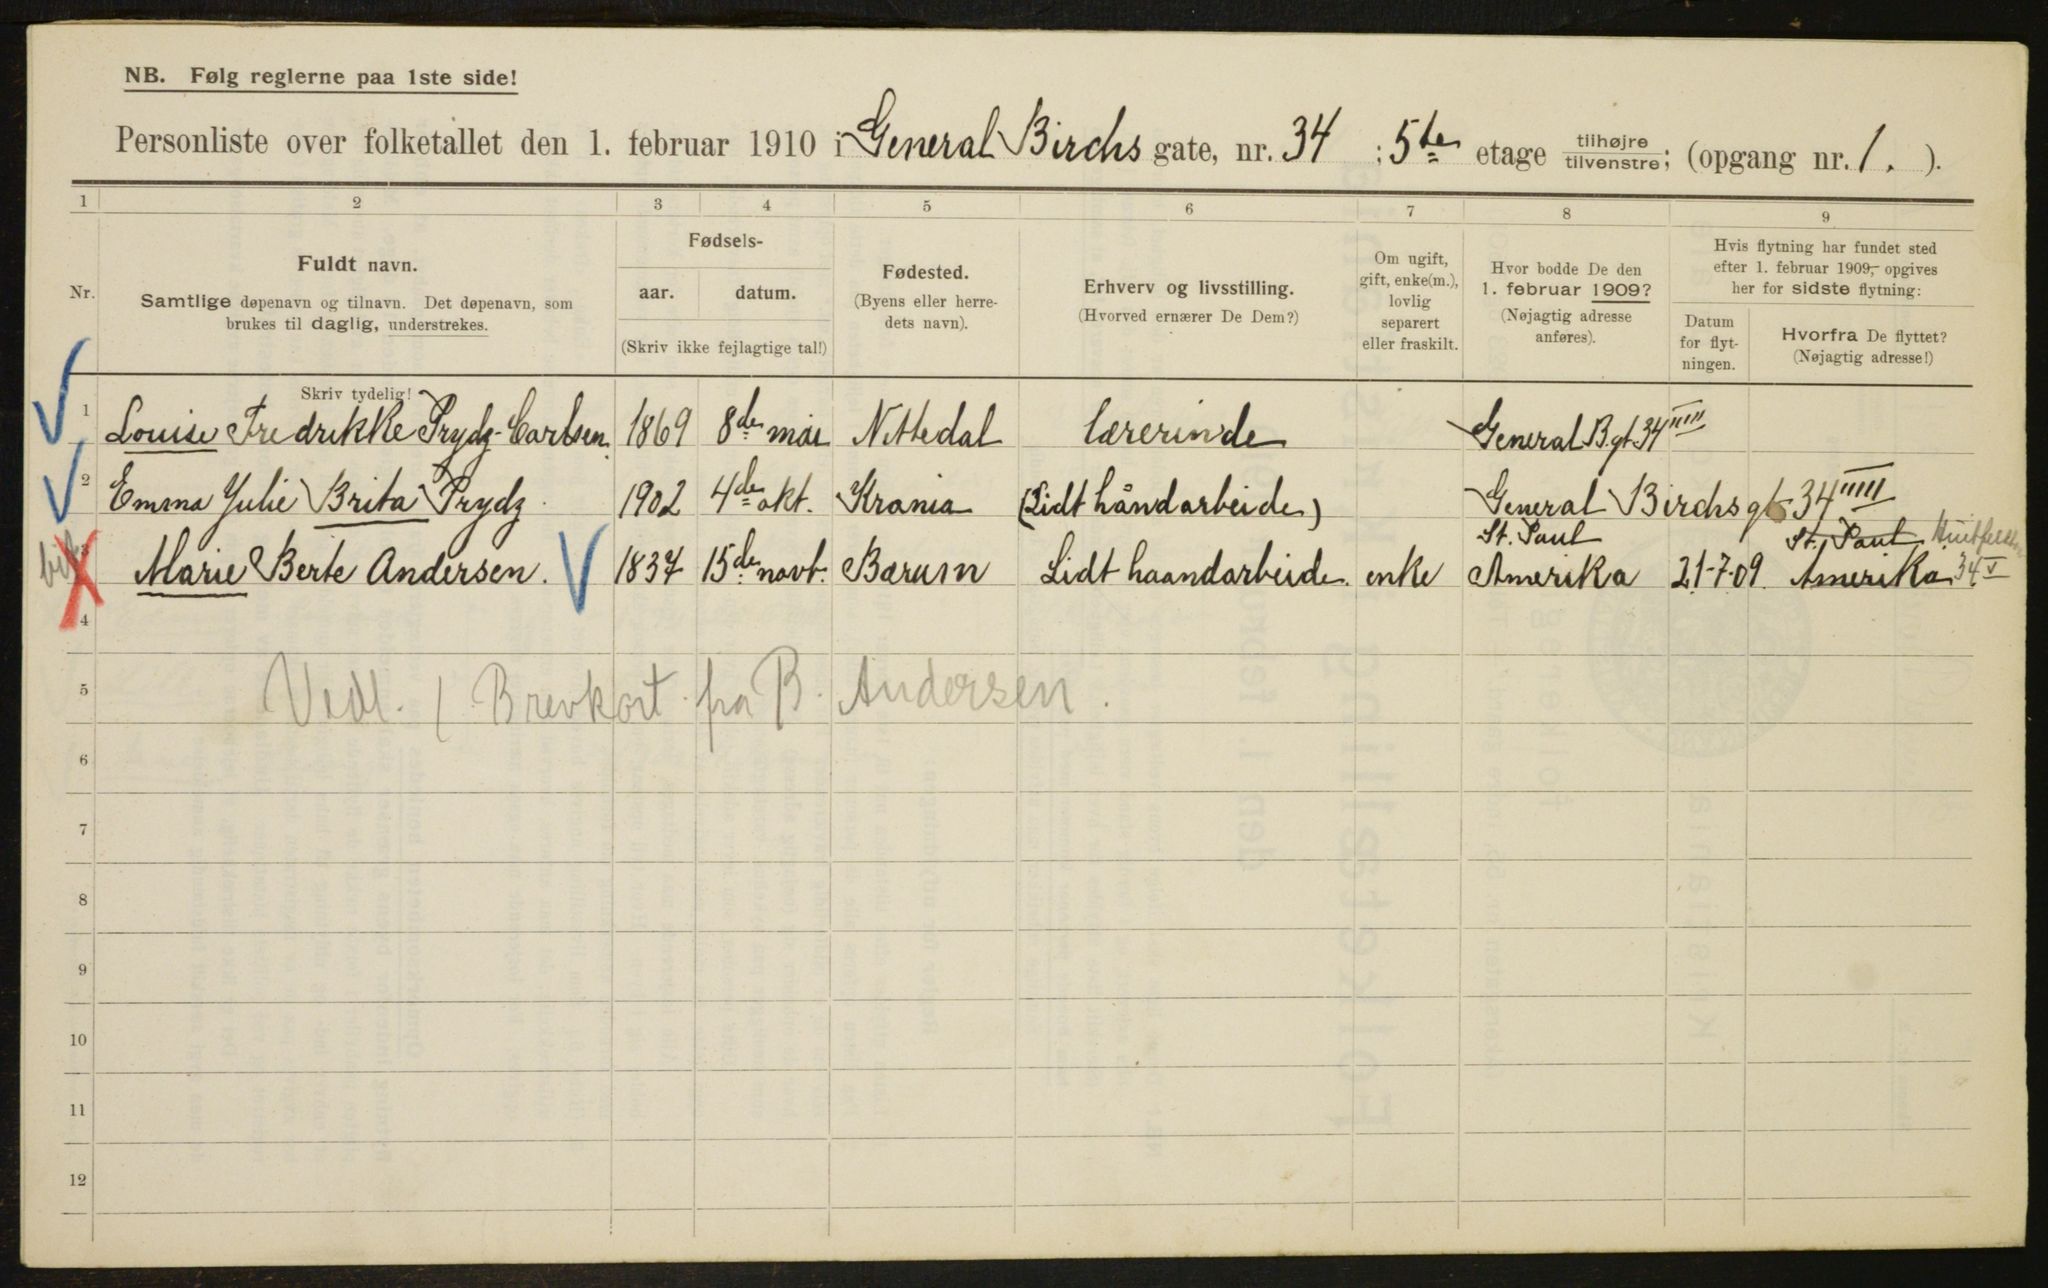 NB. Følg reglerne paa 1ste side!
Personliste over folketallet den 1. februar 1910 i General Birchs gate, nr. 34 : 5te etage tilhøjre/tilvenstre; (opgang nr. 1. ).
1 2 3 4 5 6 7 8 9
Nr.
Fuldt navn.
Samtlige døpenavn og tilnavn. Det døpenavn, som
brukes til daglig, understrekes.
Skriv tydelig!
Fødsels-
aar. datum.
(Skriv ikke fejlagtige tal!)
Fødested.
(Byens eller herre-
dets navn).
Erhverv og livsstilling.
(Hvorved ernærer De Dem?)
Om ugift,
gift, enke(m.),
lovlig
separert
eller fraskilt.
Hvor bodde De den
1. februar 1909?
(Nøjagtig adresse
anføres).
Hvis flytning har fundet sted
efter 1. februar 1909, opgives
her for sidste flytning:
Datum
for flyt-
ningen.
Hvorfra De flyttet?
(Nøjagtig adresse!)
1 Louise Fredrikke Prydz-Carlsen. 1869 8de mai Nittedal lærerinde General B.gt 34 IIIII
2 Emma Julie Brita Prydz. 1902 4de okt. Krania (Lidt håndarbeide) General Birchs gt 34 IIIII
St. Paul St. Paul
3 Marie Berte Andersen. 1837 15de novt. Bærum Lidt haandarbeide. enke Amerika 21-7-09. Amerika 34 V
4
5 Vedl. 1 Brevkort fra B. Andersen.
6
7
8
9
10
11
12